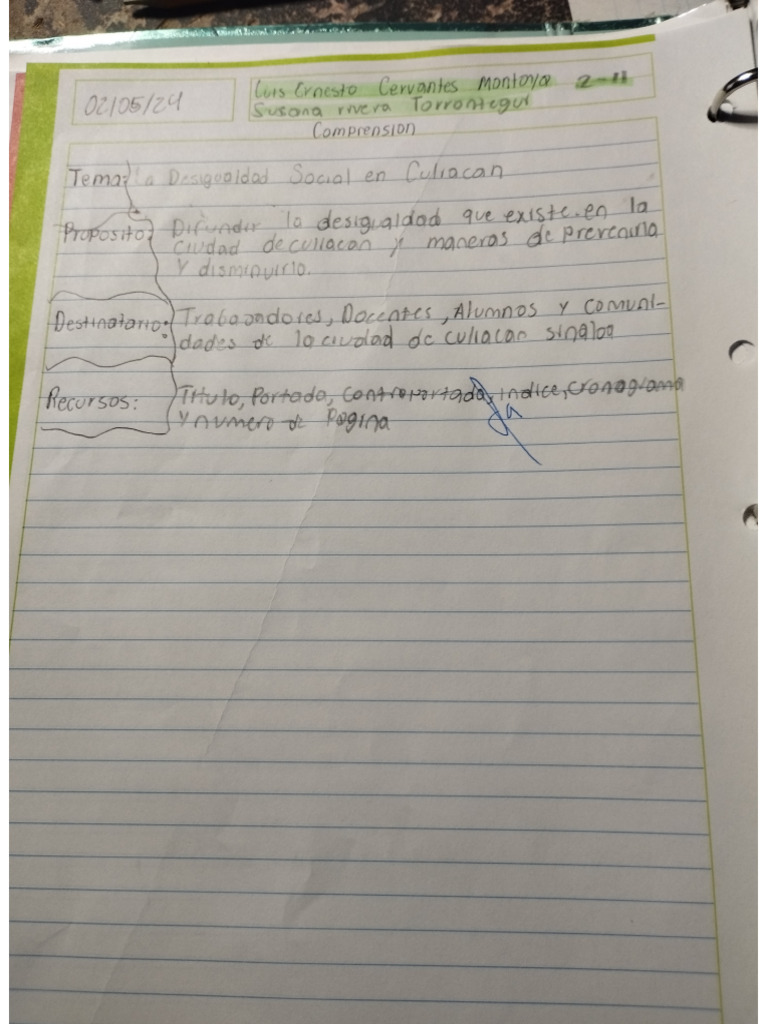 02/05/24
Luis Ernesto Cervantes Montoya 2-11
Susana rivera Torrontegui
Comprension
Tema: La Desigualdad Social en Culiacan
Proposito: Difundir la desigualdad que existe en la
ciudad de culiacan y maneras de prevenirla
y disminuirlo.
Destinatario: Trabaandores, Docentes, Alumnos y comuni-
dades de la ciudad de culiacan sinaloa
Recursos: Titulo, Portada, Contraportada, indice, cronograma
y numero de Pagina